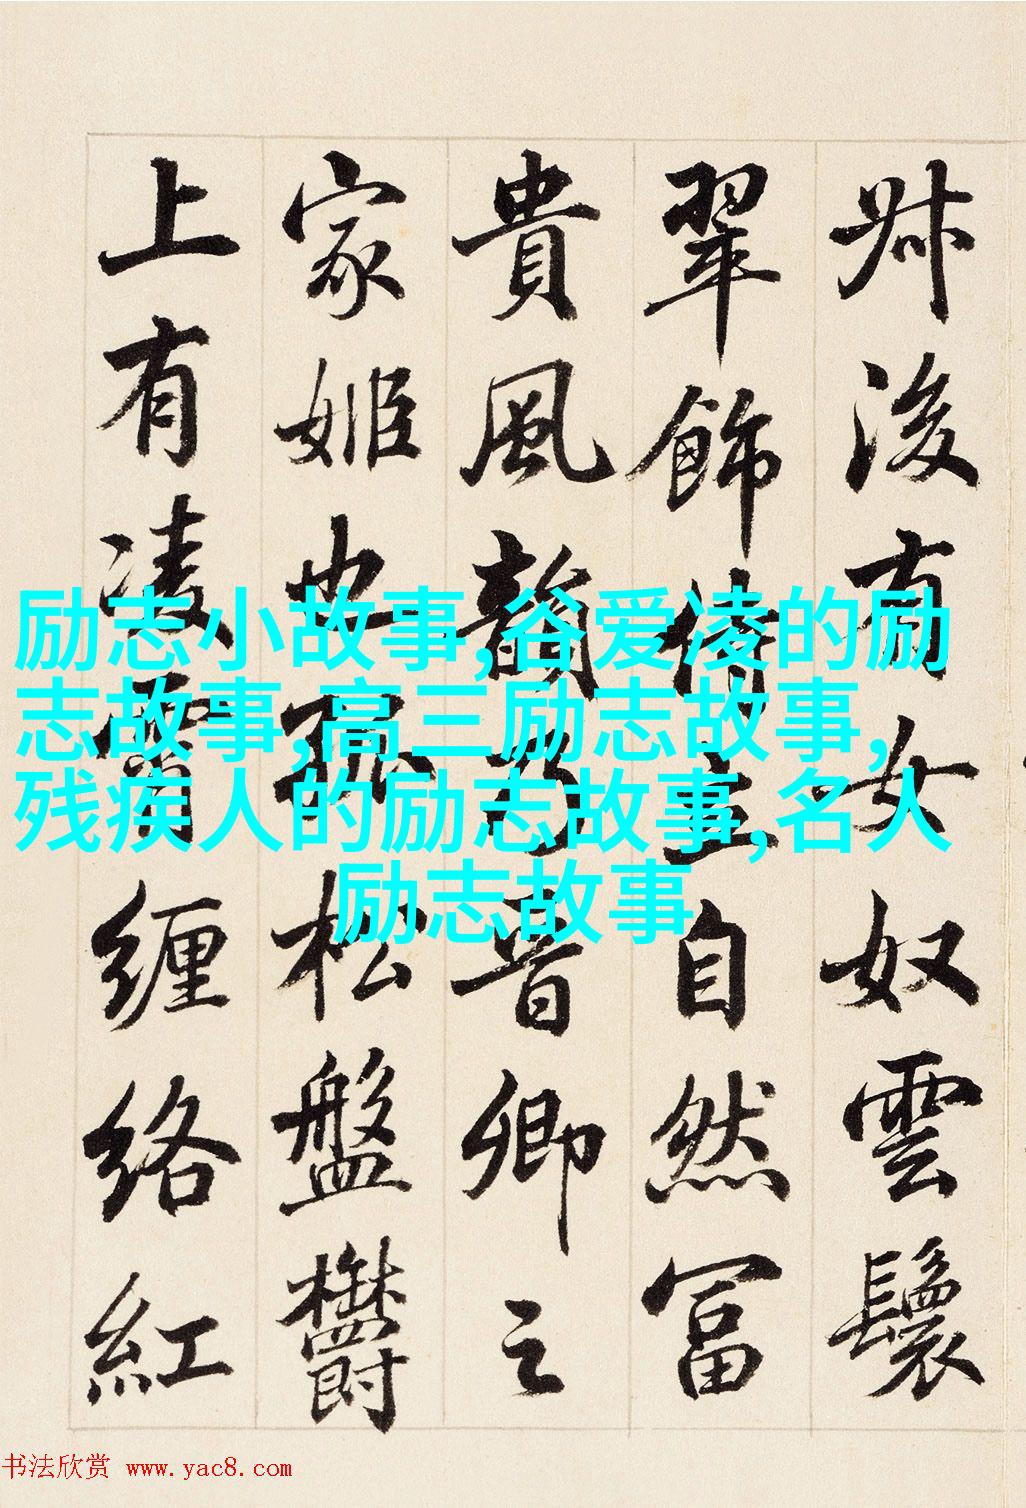 叔後有女奴雲鬟
翠飾侍立自然冨
貴風韻乃晋卿之
家姬也孤松盤欝
上有凌霄缠絡紅
励志小故事,谷爱凌的励
志故事,高三励志故事,
残疾人的励志故事,名人
励志故事
书法欣赏 www.yac8.com